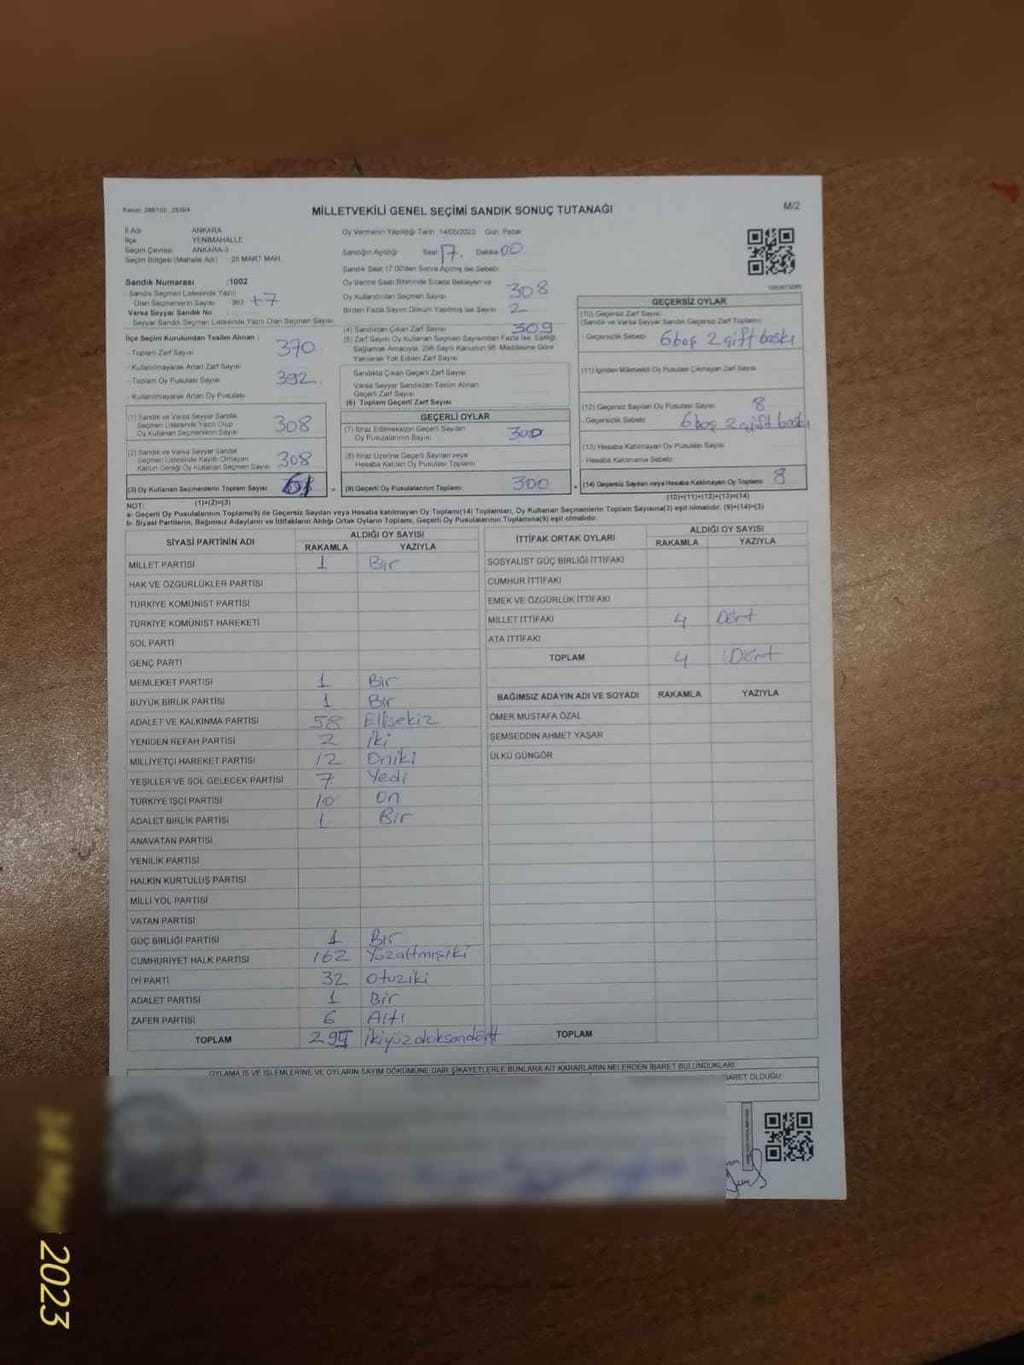 MİLLETVEKİLİ GENEL SEÇİMİ SANDIK SONUÇ TUTANAĞI
M/2
İl Adı ANKARA
İlçe YENİMAHALLE
Seçim Çevresi ANKARA-3
Seçim Bölgesi (Mahalle Adı) : 25 MART MAH.
Sandık Numarası :1002
Sandık Seçmen Listesinde Yazılı
Olan Seçmenlerin Sayısı 363 +7
Varsa Seyyar Sandık No
Seyyar Sandık Seçmen Listesinde Yazılı Olan Seçmen Sayısı
İlçe Seçim Kurulundan Teslim Alınan :
- Toplam Zarf Sayısı 370
- Kullanılmayarak Artan Zarf Sayısı
- Toplam Oy Pusulası Sayısı 392
- Kullanılmayarak Artan Oy Pusulası
(1) Sandık ve Varsa Seyyar Sandık
Seçmen Listesinde Yazılı Olup
Oy Kullanan Seçmenlerin Sayısı 308
(2) Sandık ve Varsa Seyyar Sandık
Seçmen Listesinde Kayıtlı Olmayan
Kanun Gereği Oy Kullanan Seçmen Sayısı 308
(3) Oy Kullanan Seçmenlerin Toplam Sayısı
(1)+(2)=(3)
Oy Vermenin Yapıldığı Tarih : 14/05/2023 Gün : Pazar
Sandığın Açıldığı Saat 17 Dakika 00
Sandık Saat 17.00'den Sonra Açılmış ise Sebebi
Oy Verme Saati Bitiminde Sırada Bekleyen ve
Oy Kullandırılan Seçmen Sayısı 308
Birden Fazla Sayım Döküm Yapılmış ise Sayısı 2
(4) Sandıktan Çıkan Zarf Sayısı 309
(5) Zarf Sayısı Oy Kullanan Seçmen Sayısından Fazla ise, Eşitliği
Sağlamak Amacıyla, 298 Sayılı Kanunun 98. Maddesine Göre
Yakılarak Yok Edilen Zarf Sayısı
Sandıkta Çıkan Geçerli Zarf Sayısı
Varsa Seyyar Sandıktan Teslim Alınan
Geçerli Zarf Sayısı
(6) Toplam Geçerli Zarf Sayısı
GEÇERLİ OYLAR
(7) İtiraz Edilmeksizin Geçerli Sayılan
Oy Pusulasının Sayısı 300
(8) İtiraz Üzerine Geçerli Sayılan veya
Hesaba Katılan Oy Pusulası Toplamı
(9) Geçerli Oy Pusulalarının Toplamı 300
GEÇERSİZ OYLAR
(10) Geçersiz Zarf Sayısı
(Sandık ve Varsa Seyyar Sandık Geçersiz Zarf Toplamı)
- Geçersizlik Sebebi: 6 boş 2 çift baskı
(11) İçinden Milletvekili Oy Pusulası Çıkmayan Zarf Sayısı
(12) Geçersiz Sayılan Oy Pusulası Sayısı 8
- Geçersizlik Sebebi: 6 boş 2 çift baskı
(13) Hesaba Katılmayan Oy Pusulası Sayısı
- Hesaba Katılmama Sebebi :
(14) Geçersiz Sayılan veya Hesaba Katılmayan Oy Toplamı 8
(10)+(11)+(12)+(13)=(14)
NOT:
a- Geçerli Oy Pusulalarının Toplamı(9) ile Geçersiz Sayılan veya Hesaba katılmayan Oy Pusulası(14) Toplamları, Oy Kullanan Seçmenlerin Toplam Sayısına(3) eşit olmalıdır. (9)+(14)=(3)
b- Siyasi Partilerin, Bağımsız Adayların ve İttifakların Aldığı Ortak Oyların Toplamı, Geçerli Oy Pusulalarının Toplamına(9) eşit olmalıdır.
SİYASİ PARTİNİN ADI ALDIĞI OY SAYISI
RAKAMLA YAZIYLA
MİLLET PARTİSİ 1 Bir
HAK VE ÖZGÜRLÜKLER PARTİSİ
TÜRKİYE KOMÜNİST PARTİSİ
TÜRKİYE KOMÜNİST HAREKETİ
SOL PARTİ
GENÇ PARTİ
MEMLEKET PARTİSİ 1 Bir
BÜYÜK BİRLİK PARTİSİ 1 Bir
ADALET VE KALKINMA PARTİSİ 58 Ellisekiz
YENİDEN REFAH PARTİSİ 2 İki
MİLLİYETÇİ HAREKET PARTİSİ 12 Oniki
YEŞİLLER VE SOL GELECEK PARTİSİ 7 Yedi
TÜRKİYE İŞÇİ PARTİSİ 10 On
ADALET BİRLİK PARTİSİ 1 Bir
ANAVATAN PARTİSİ
YENİLİK PARTİSİ
HALKIN KURTULUŞ PARTİSİ
MİLLİ YOL PARTİSİ
VATAN PARTİSİ
GÜÇ BİRLİĞİ PARTİSİ 1 Bir
CUMHURİYET HALK PARTİSİ 162 Yüzaltmışiki
İYİ PARTİ 32 Otuziki
ADALET PARTİSİ 1 Bir
ZAFER PARTİSİ 6 Altı
TOPLAM ikiyüzdoksandört
İTTİFAK ORTAK OYLARI ALDIĞI OY SAYISI
RAKAMLA YAZIYLA
SOSYALİST GÜÇ BİRLİĞİ İTTİFAKI
CUMHUR İTTİFAKI
EMEK VE ÖZGÜRLÜK İTTİFAKI
MİLLET İTTİFAKI 4 Dört
ATA İTTİFAKI
TOPLAM 4 Dört
BAĞIMSIZ ADAYIN ADI VE SOYADI RAKAMLA YAZIYLA
ÖMER MUSTAFA ÖZAL
ŞEMSEDDİN AHMET YAŞAR
ÜLKÜ GÜNGÖR
TOPLAM
OYLAMA İŞ VE İŞLEMLERİNE VE OYLARIN SAYIM DÖKÜMÜNE DAİR ŞİKAYETLERLE BUNLARA AİT KARARLARIN NELERDEN İBARET BULUNDUKLARI
BARET OLDUĞU
2023